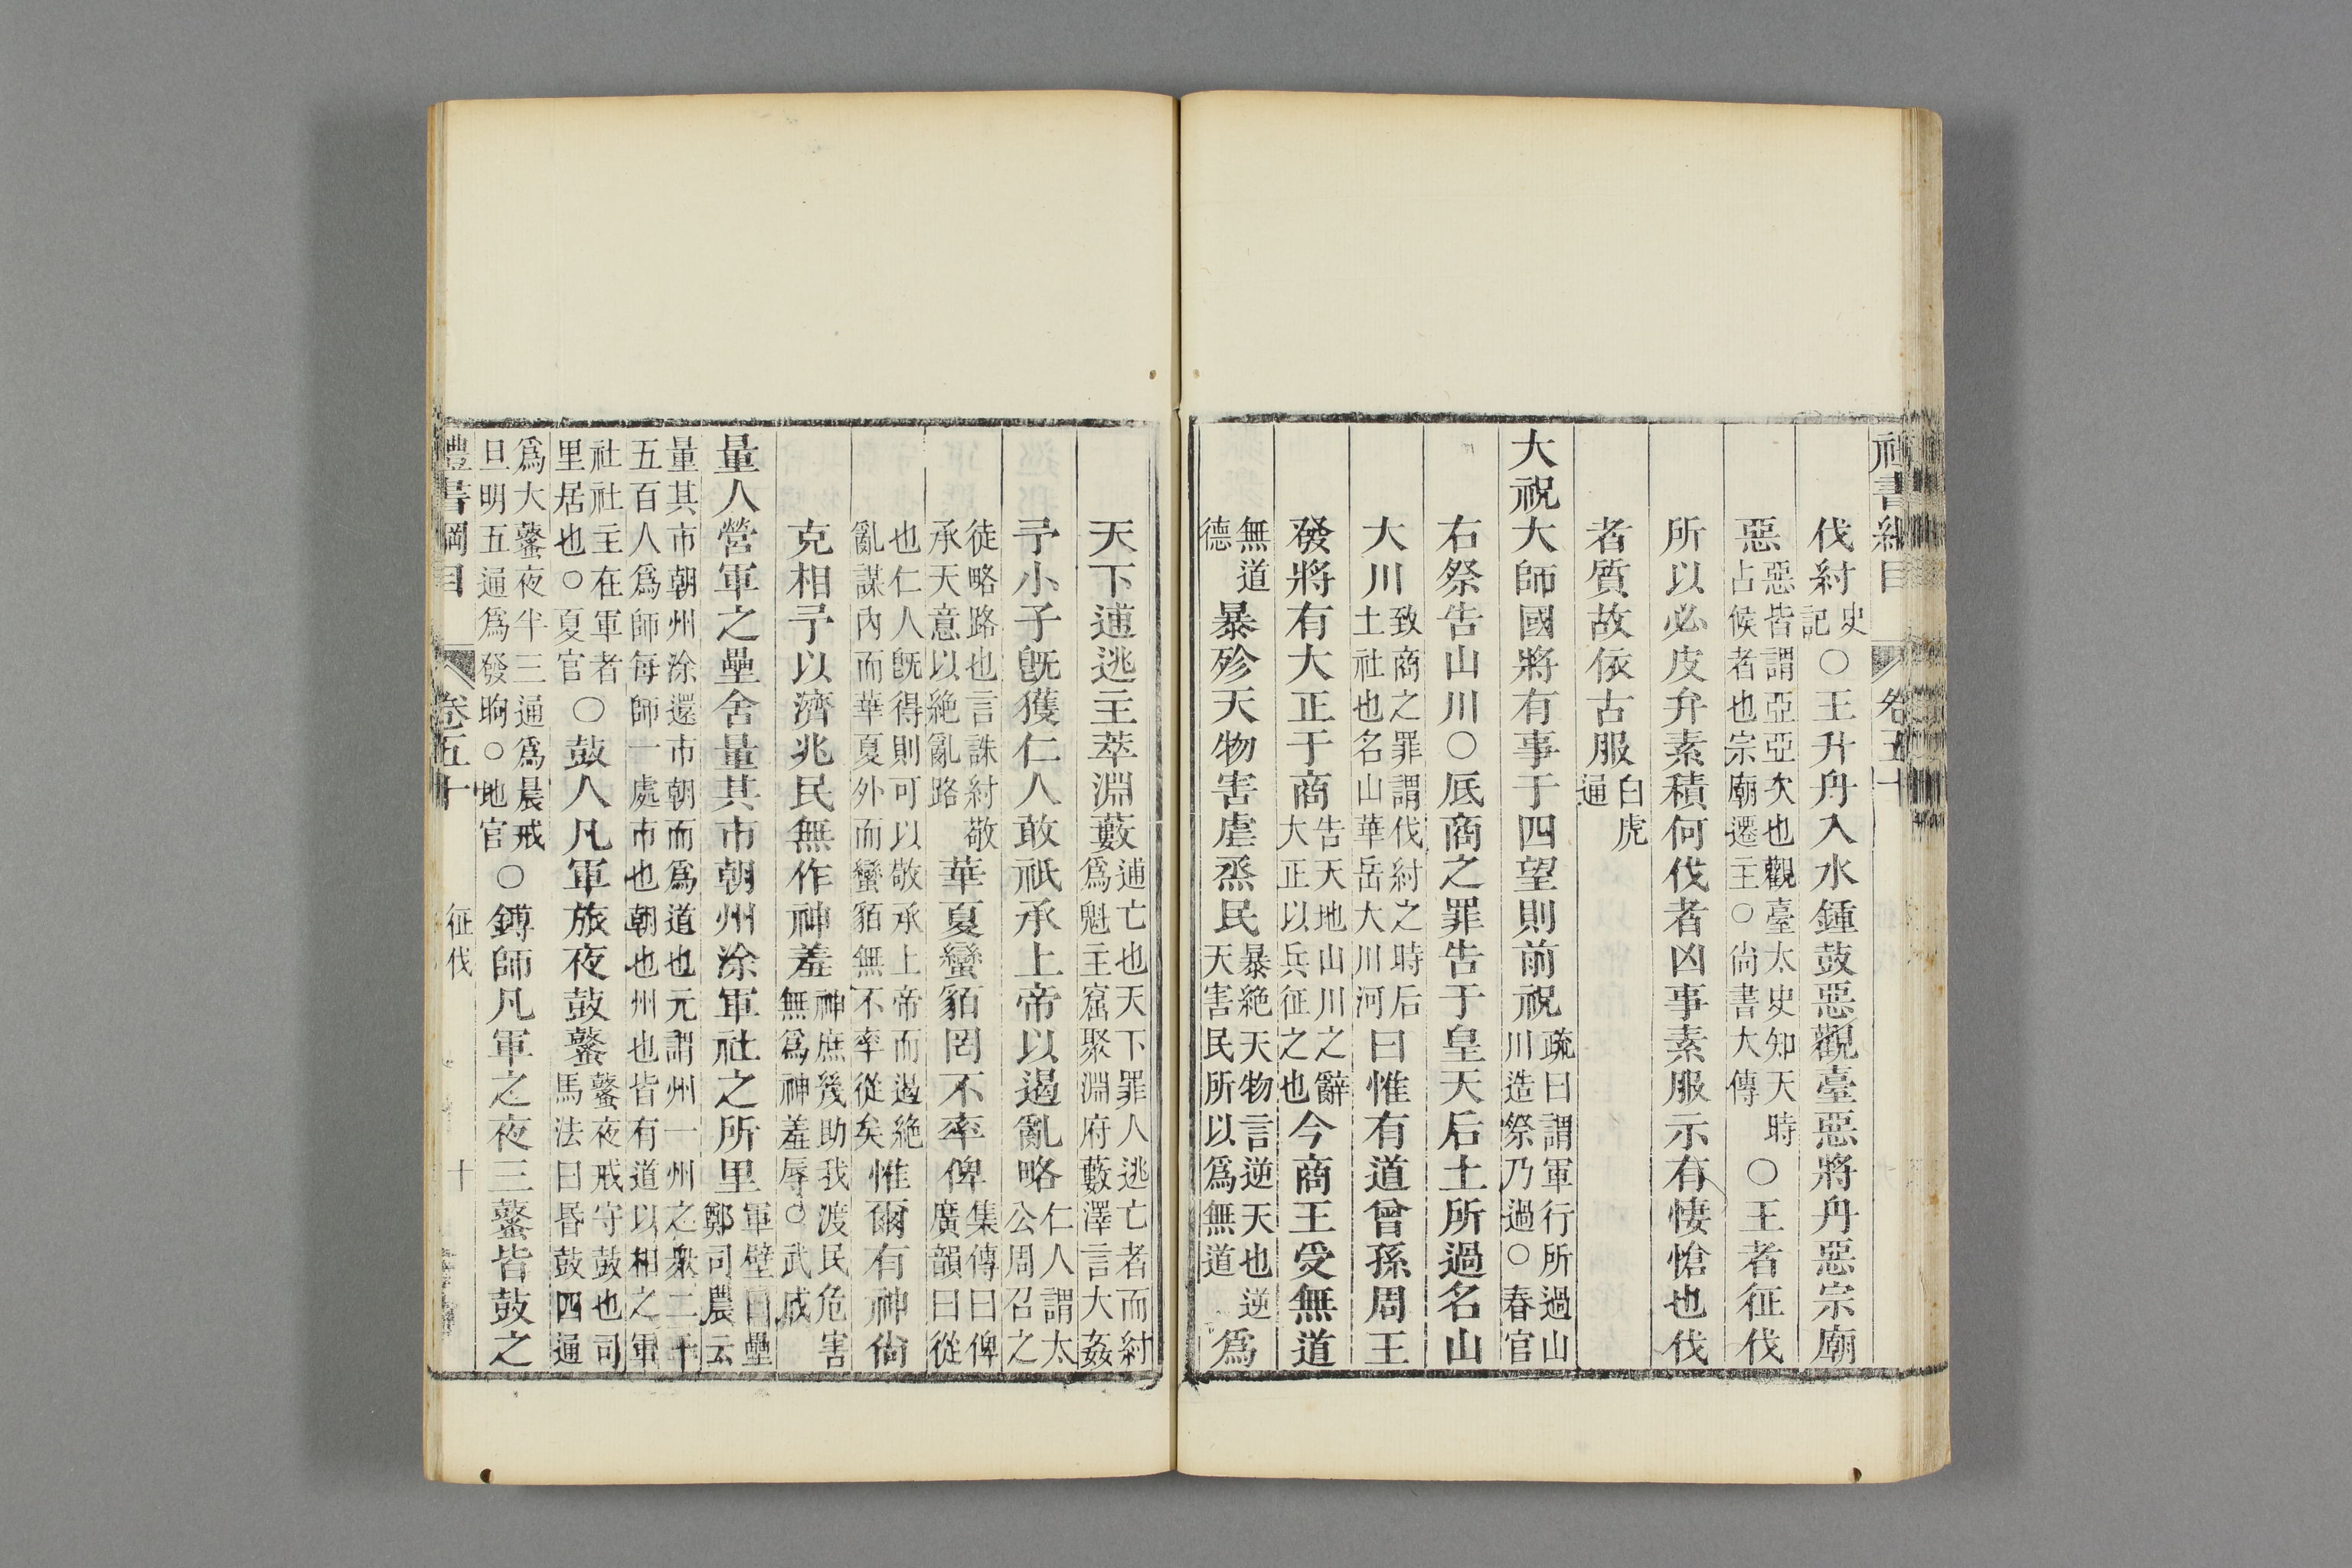 禮書綱目 卷五十
伐紂史記○王升舟入水鍾鼓惡觀臺惡將舟惡宗廟
惡惡皆謂亞亞次也觀臺太史知天時占候者也宗廟遷主○尙書大傳○王者征伐
所以必皮弁素積何伐者凶事素服示有悽愴也伐
者質故依古服白虎通
大祝大師國將有事于四望則前祝疏曰謂軍行所過山川造祭乃過○春官
右祭告山川○底商之罪告于皇天后土所過名山
大川致商之罪謂伐紂之時后土社也名山華岳大川河曰惟有道曾孫周王
發將有大正于商告天地山川之辭大正以兵征之也今商王受無道
無道德暴殄天物害虐烝民暴絶天物言逆天也逆天害民所以爲無道爲
天下逋逃主萃淵藪逋亡也天下罪人逃亡者而紂爲魁主窟聚淵府藪澤言大姦
予小子旣獲仁人敢祇承上帝以遏亂略仁人謂太公周召之
徒略路也言誅紂敬承天意以絶亂路華夏蠻貊罔不率俾集傳曰俾廣韻曰從
也仁人旣得則可以敬承上帝而遏絶亂謀內而華夏外而蠻貊無不率從矣惟爾有神尙
克相予以濟兆民無作神羞神庶幾助我渡民危害無爲神羞辱○武成
量人營軍之壘舍量其市朝州涂軍社之所里軍壁曰壘鄭司農云
量其市朝州涂還市朝而爲道也元謂州一州之衆二千五百人爲師每師一處市也朝也州也皆有道以相之軍
社社主在軍者里居也○夏官○鼓人凡軍旅夜鼓鼜鼜夜戒守鼓也司馬法曰昬鼓四通
爲大鼜夜半三通爲晨戒旦明五通爲發昫○地官○鎛師凡軍之夜三鼜皆鼓之
禮書綱目 卷五十 征伐 十